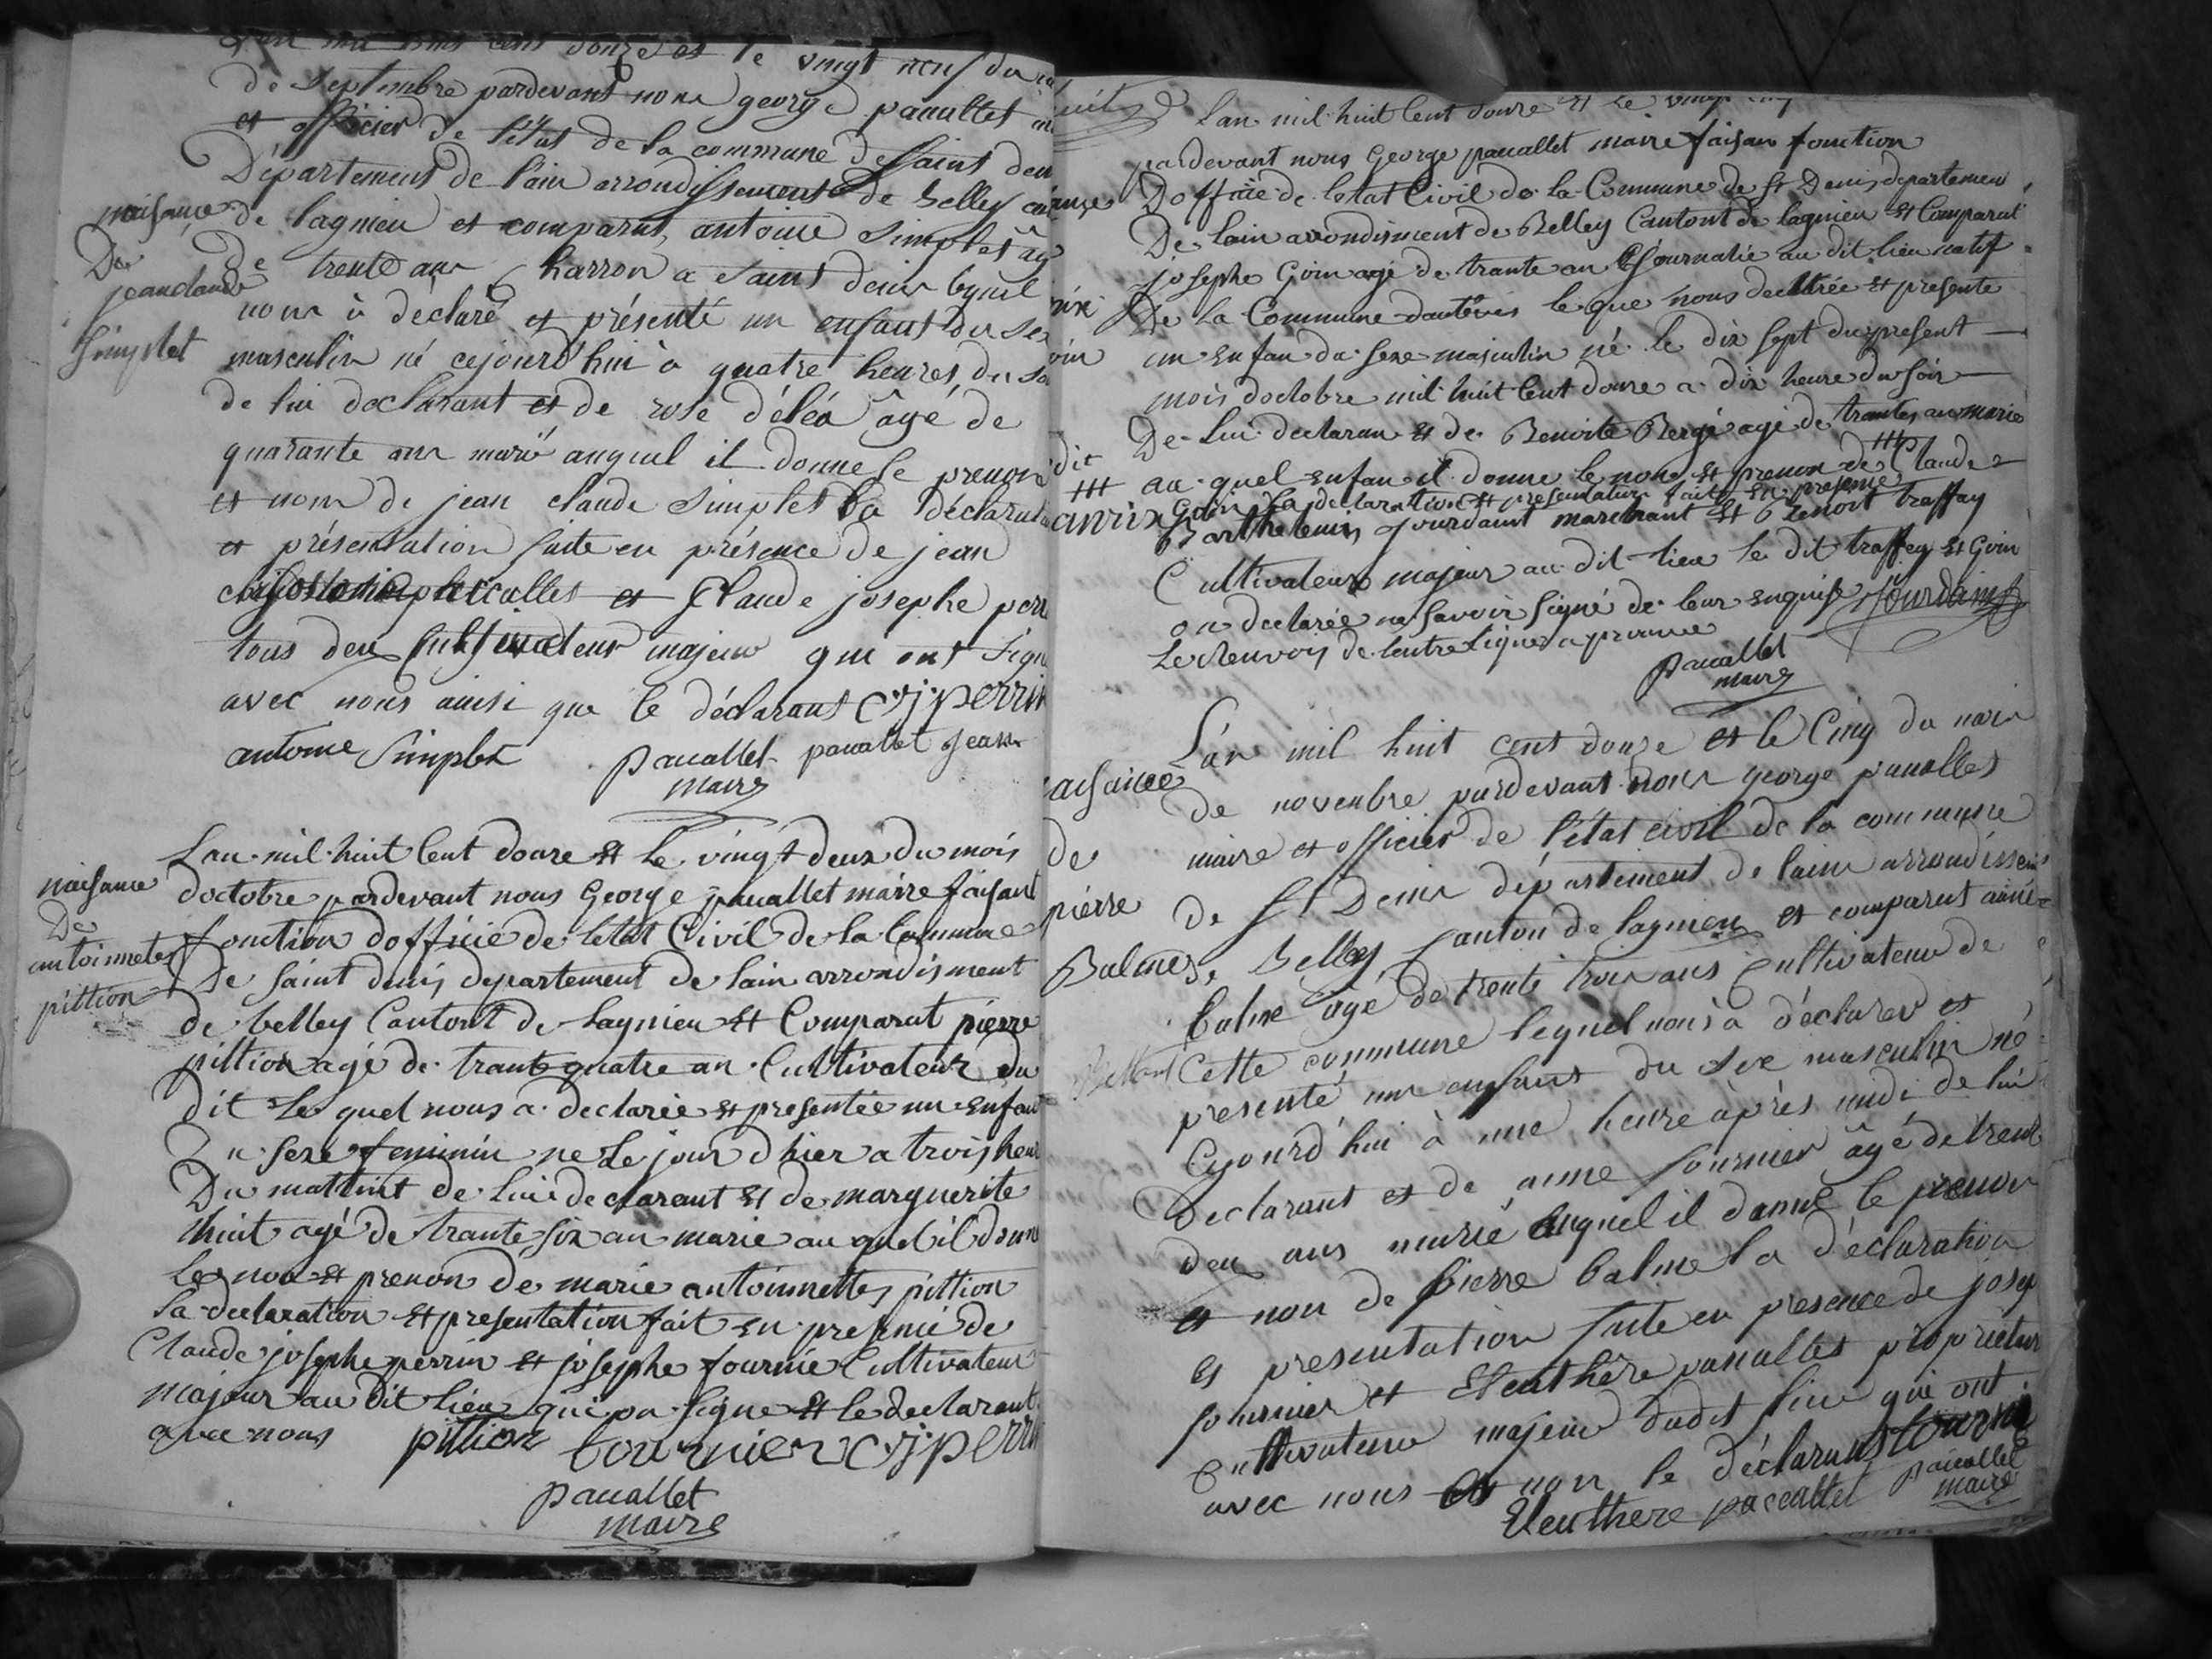 douze et le vingt neuf du
de septembre pardevant nous george pauallet
et officier de l'état de la commune de saint den
Département de l'ain arrondissement de belley can
naisance
De
jean claude
simplet
de lagnieu et comparut antoine simplet âg
de trente ans charron a saint denis lequel
nous à déclaré et présenté un enfant du sex
masculin né cejourd'hui à quatre heures du so
de lui declarant et de rose déléa âgé de
quarante ans marié auquel il donne le prenom
et nom de jean claude simplet la déclarat
et présentation faite en présence de jean
pauallet et Claude josephe perr
tous deux cultivateur majeur qui ont sign
avec nous ainsi que le déclarant C j perrin
antoine simplet pauallet pauallet jean
maire
naisance
De
antoinnettes
pittion
Lan mil huit Cent douze et le vingt deux du mois
doctobre pardevant nous George pauallet maire faisant
fonction dofficié de letat Civil de la Commune
De saint denis departement de lain arrondisment
de belley Cantont de Lagnieu et Comparut pierre
pittion agé de trante quatre an Cultivateur du
dit le quel nous a declarée et presentée un enfant
Du sexe feminin ne Le jour dhier a trois heur
Du mattint de lui declarant et de marguerite
huit agé de trante six an marie au quel il donn
Le nom et prenon de marie antoinnettes pittion
la declaration et presentation fait en presence de
Claude josephe perrin et josephe fournie Cultivateur
majeur au dit lieu qui on signe et le declarant
avec nous pittion tournier C j perrin
pauallet
maire
Lan mil huit Cent douze et le vingt
pardevant nous George pauallet maire faisan fonction
Dofficié de letat Civil de la Commune de St Denis departement
De lain arrondisment de Belley Cantont de lagnieu et Comparut
josephe Goin agé de trante an journalié au dit lieu natif
De la Commune le que nous declarée et presente
un enfan du sexe masculin né le dix sept du present
mois doctobre mil huit Cent douze a dix heure du soir
De lui declaran et de Benoite Bergé agé de trantes an marie
au quel enfan il donne le nom et prenon de Claude
Goin la declaration et presentation faite en presence
Barthelemis jourdaint marchant et Benoit traffay
Cultivateur majeur au dit lieu le dit traffey et Goin
on declarée ne savoir signé de leur enquise jourdaint
Le renvois de lentre ligne aprouvée
pauallet
maire
aisance
de
pierre
Balme
L'an mil huit cent douze et le Cinq du mois
de novembre pardevant nous george pauallet
maire et officier de l'état civil de la commune
de St Denis département de lain arrondissem
Belley canton de lagnieu et comparut aimé
balme âgé de trente trois ans cultivateur de
cette commune lequel nous à déclarer et
presenté un enfant du sexe masculin né
cejourd'hui à une heure après midi de lui
declarant et de anne fournier âgé de trent
deu ans marié auquel il donne le prenom
et nom de pierre balme la déclaration
et presentation faite en presence de josep
fournier et Eleuthère pauallet proprietair
cultivateur majeur dudit lieu qui ont
avec nous et non le déclarant tournié
Eleuthere paceallet pauallet
maire